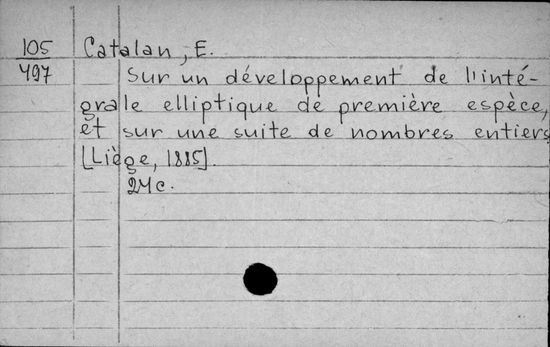 105 Catalan, E.
497 Sur un développement de l'inté-
grale elliptique de première espèce,
et sur une suite de nombres entiers
[Liège, 1885].
24c.